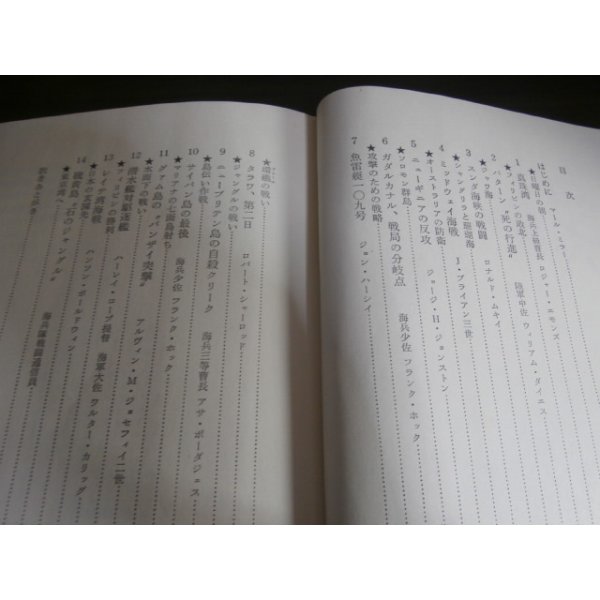 目次
はじめに アール・ミラー
★日曜日の朝
1 真珠湾 海兵上級曹長 ロジャー・エモンズ
★フィリピンの敗北
2 バターン"死の行進" 陸軍中佐 ウィリアム・ダイエス
★ジャワ海
3 スンダ海峡の戦闘 ロナルド・ムキイ
★シャングリラと珊瑚海
4 ミッドウェイ海戦 J・ブライアン三世
★オーストラリアの防衛
5 ニューギニアの反攻 ジョージ・H・ジョンストン
★ソロモン群島
6 ガダルカナル、戦局の分岐点 海兵少佐 フランク・ホック
★攻撃のための戦略
7 魚雷艇一〇九号 ジョン・ハーシイ
★環礁の戦い
8 タラワ、第二日 ロバート・シャーロッド
★ジャングルの戦い
9 ニューブリテン島の自殺クリーク 海兵三等曹長 アサ・ボーダジェス
★島伝い作戦
10 サイパン島の最後 海兵少佐 フランク・ホック
★マリアナの七面鳥射ち
11 グァム島の"バンザイ突撃" アルヴィン・M・ジョセフィイ二世
★水面下の戦い
12 潜水艦対駆逐艦 ハーレイ・コープ提督 海軍大佐 ウォルター・カリッグ
★フィリピンの勝利
13 レイテ湾海戦 ハンソン・ボールドウィン
★日本の玄関先
14 硫黄島"石のジャングル" 海兵隊戦闘通信員
★東京湾へ
訳者あとがき